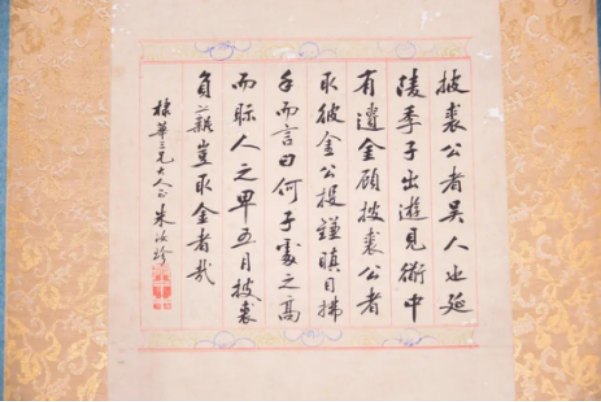 披裘公者吳人也延
陵季子出遊見中
有遺金顧披裘公者
取彼金公投鎌瞋目拂
手而言曰何子處之高
而眎人之卑五月披裘
負薪豈取金者哉
棣華三兄大人正 朱汝珍